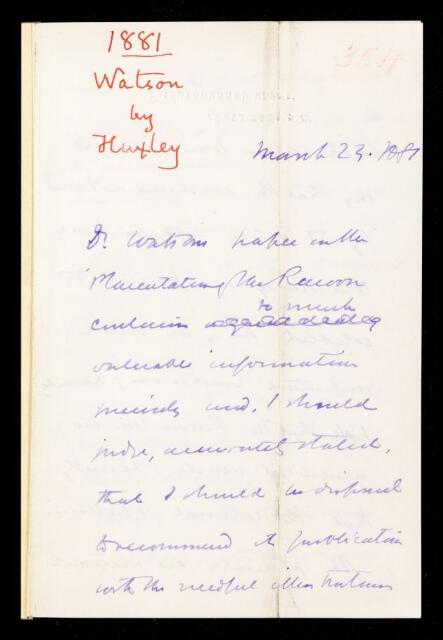 1881
Watson
by
Huxley
354
March 23. 1881
Dr Watson's paper on the
Placentation of the Racoon
contains so much
valuable information
precisely and, I should
judge, accurately stated,
that I should be disposed
to recommend its publication
with the needful illustrations